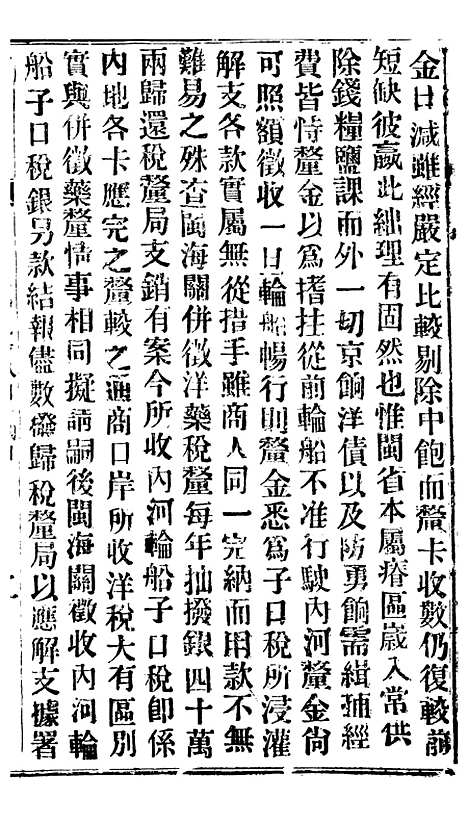 金日減雖經嚴定比較剔除中飽而釐卡收數仍復較前
短缺彼贏此絀理有固然也惟閩省本屬瘠區歲入常供
除錢糧鹽課而外一切京餉洋債以及防勇餉需緝捕經
費皆恃釐金以爲搘拄從前輪船不准行駛內河釐金尙
可照額徵收一日輪船暢行則釐金悉爲子口稅所浸灌
解支各款實屬無從措手雖商人同一完納而用款不無
難易之殊查閩海關併徵洋藥稅釐每年抽撥銀四十萬
兩歸還稅釐局支銷有案今所收內河輪船子口稅卽係
內地各卡應完之釐較之通商口岸所收洋稅大有區別
實與併徵藥釐情事相同擬請嗣後閩海關徵收內河輪
船子口稅銀另款結報儘數撥歸稅釐局以應解支據署